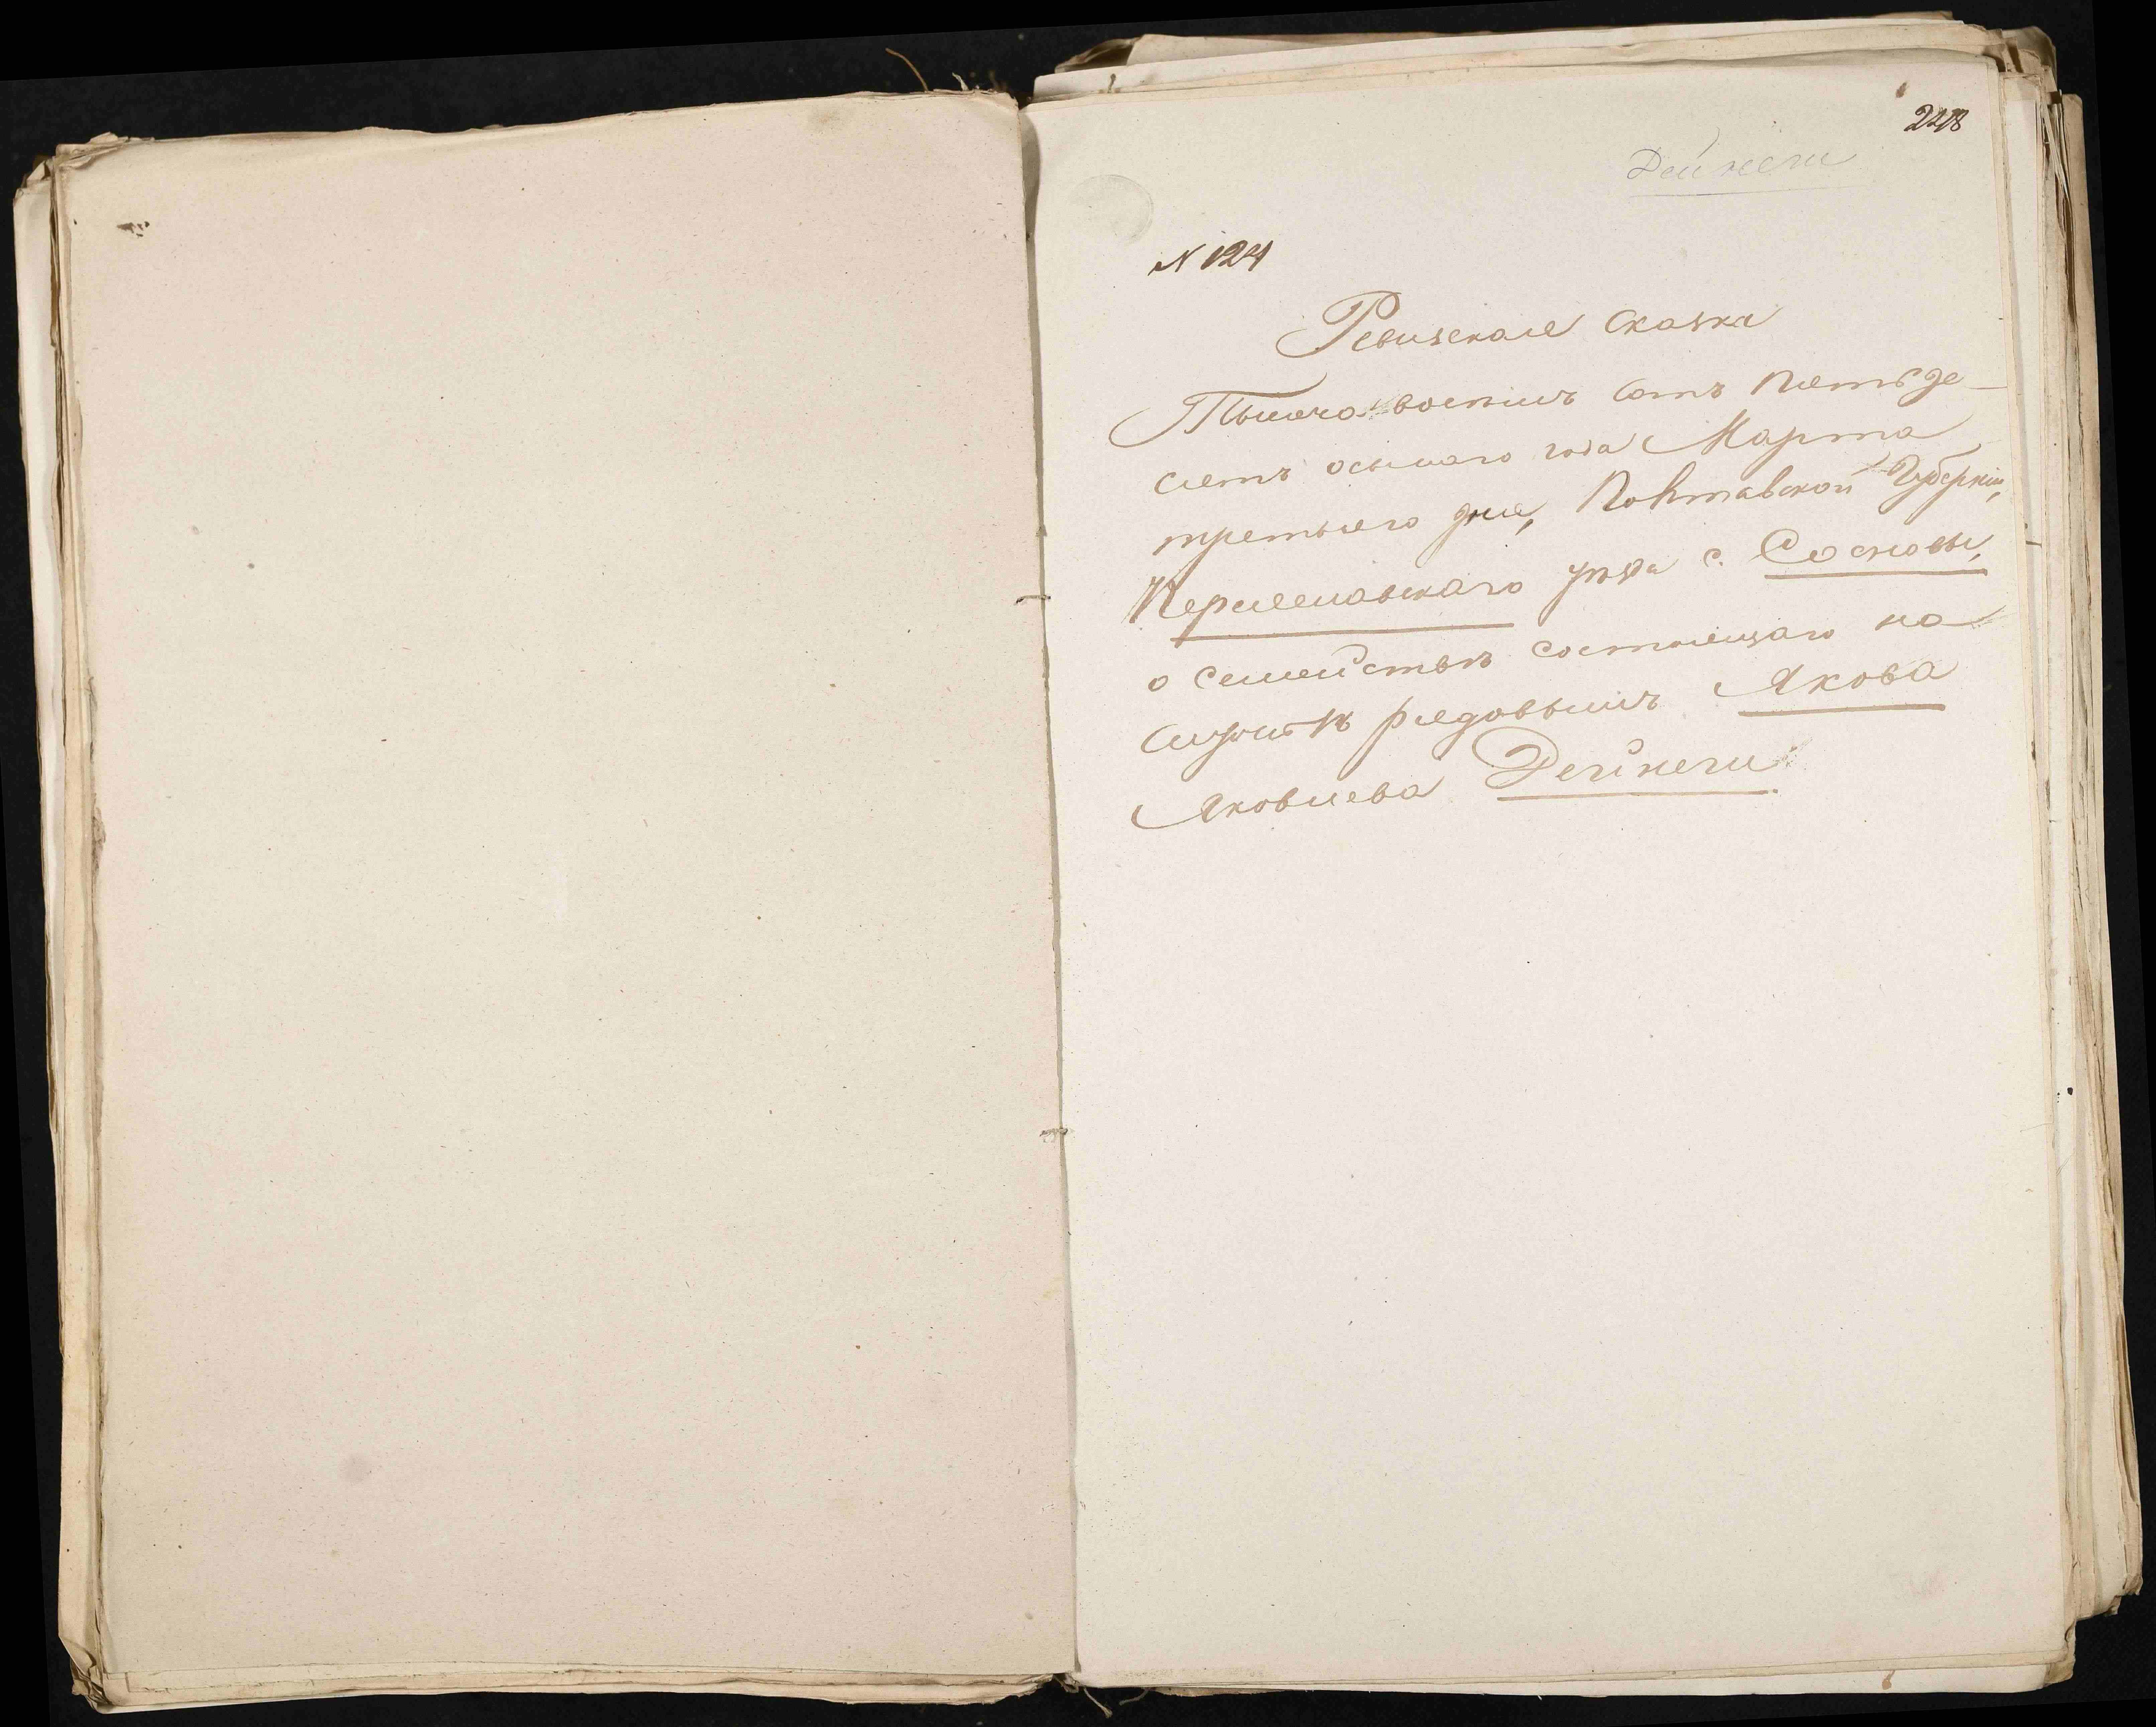 Дейнеги
N 124
Ревизская Сказка
Тысяча восемь сотъ пятьде-
сятъ осьмаго года Марта
третьяго дня, Полтавской Губерніи,
Переяславскаго уѣзда с. Сосновы,
о семействѣ состоящаго на
службѣ рядовымъ Якова
Яковлева Дейнеги